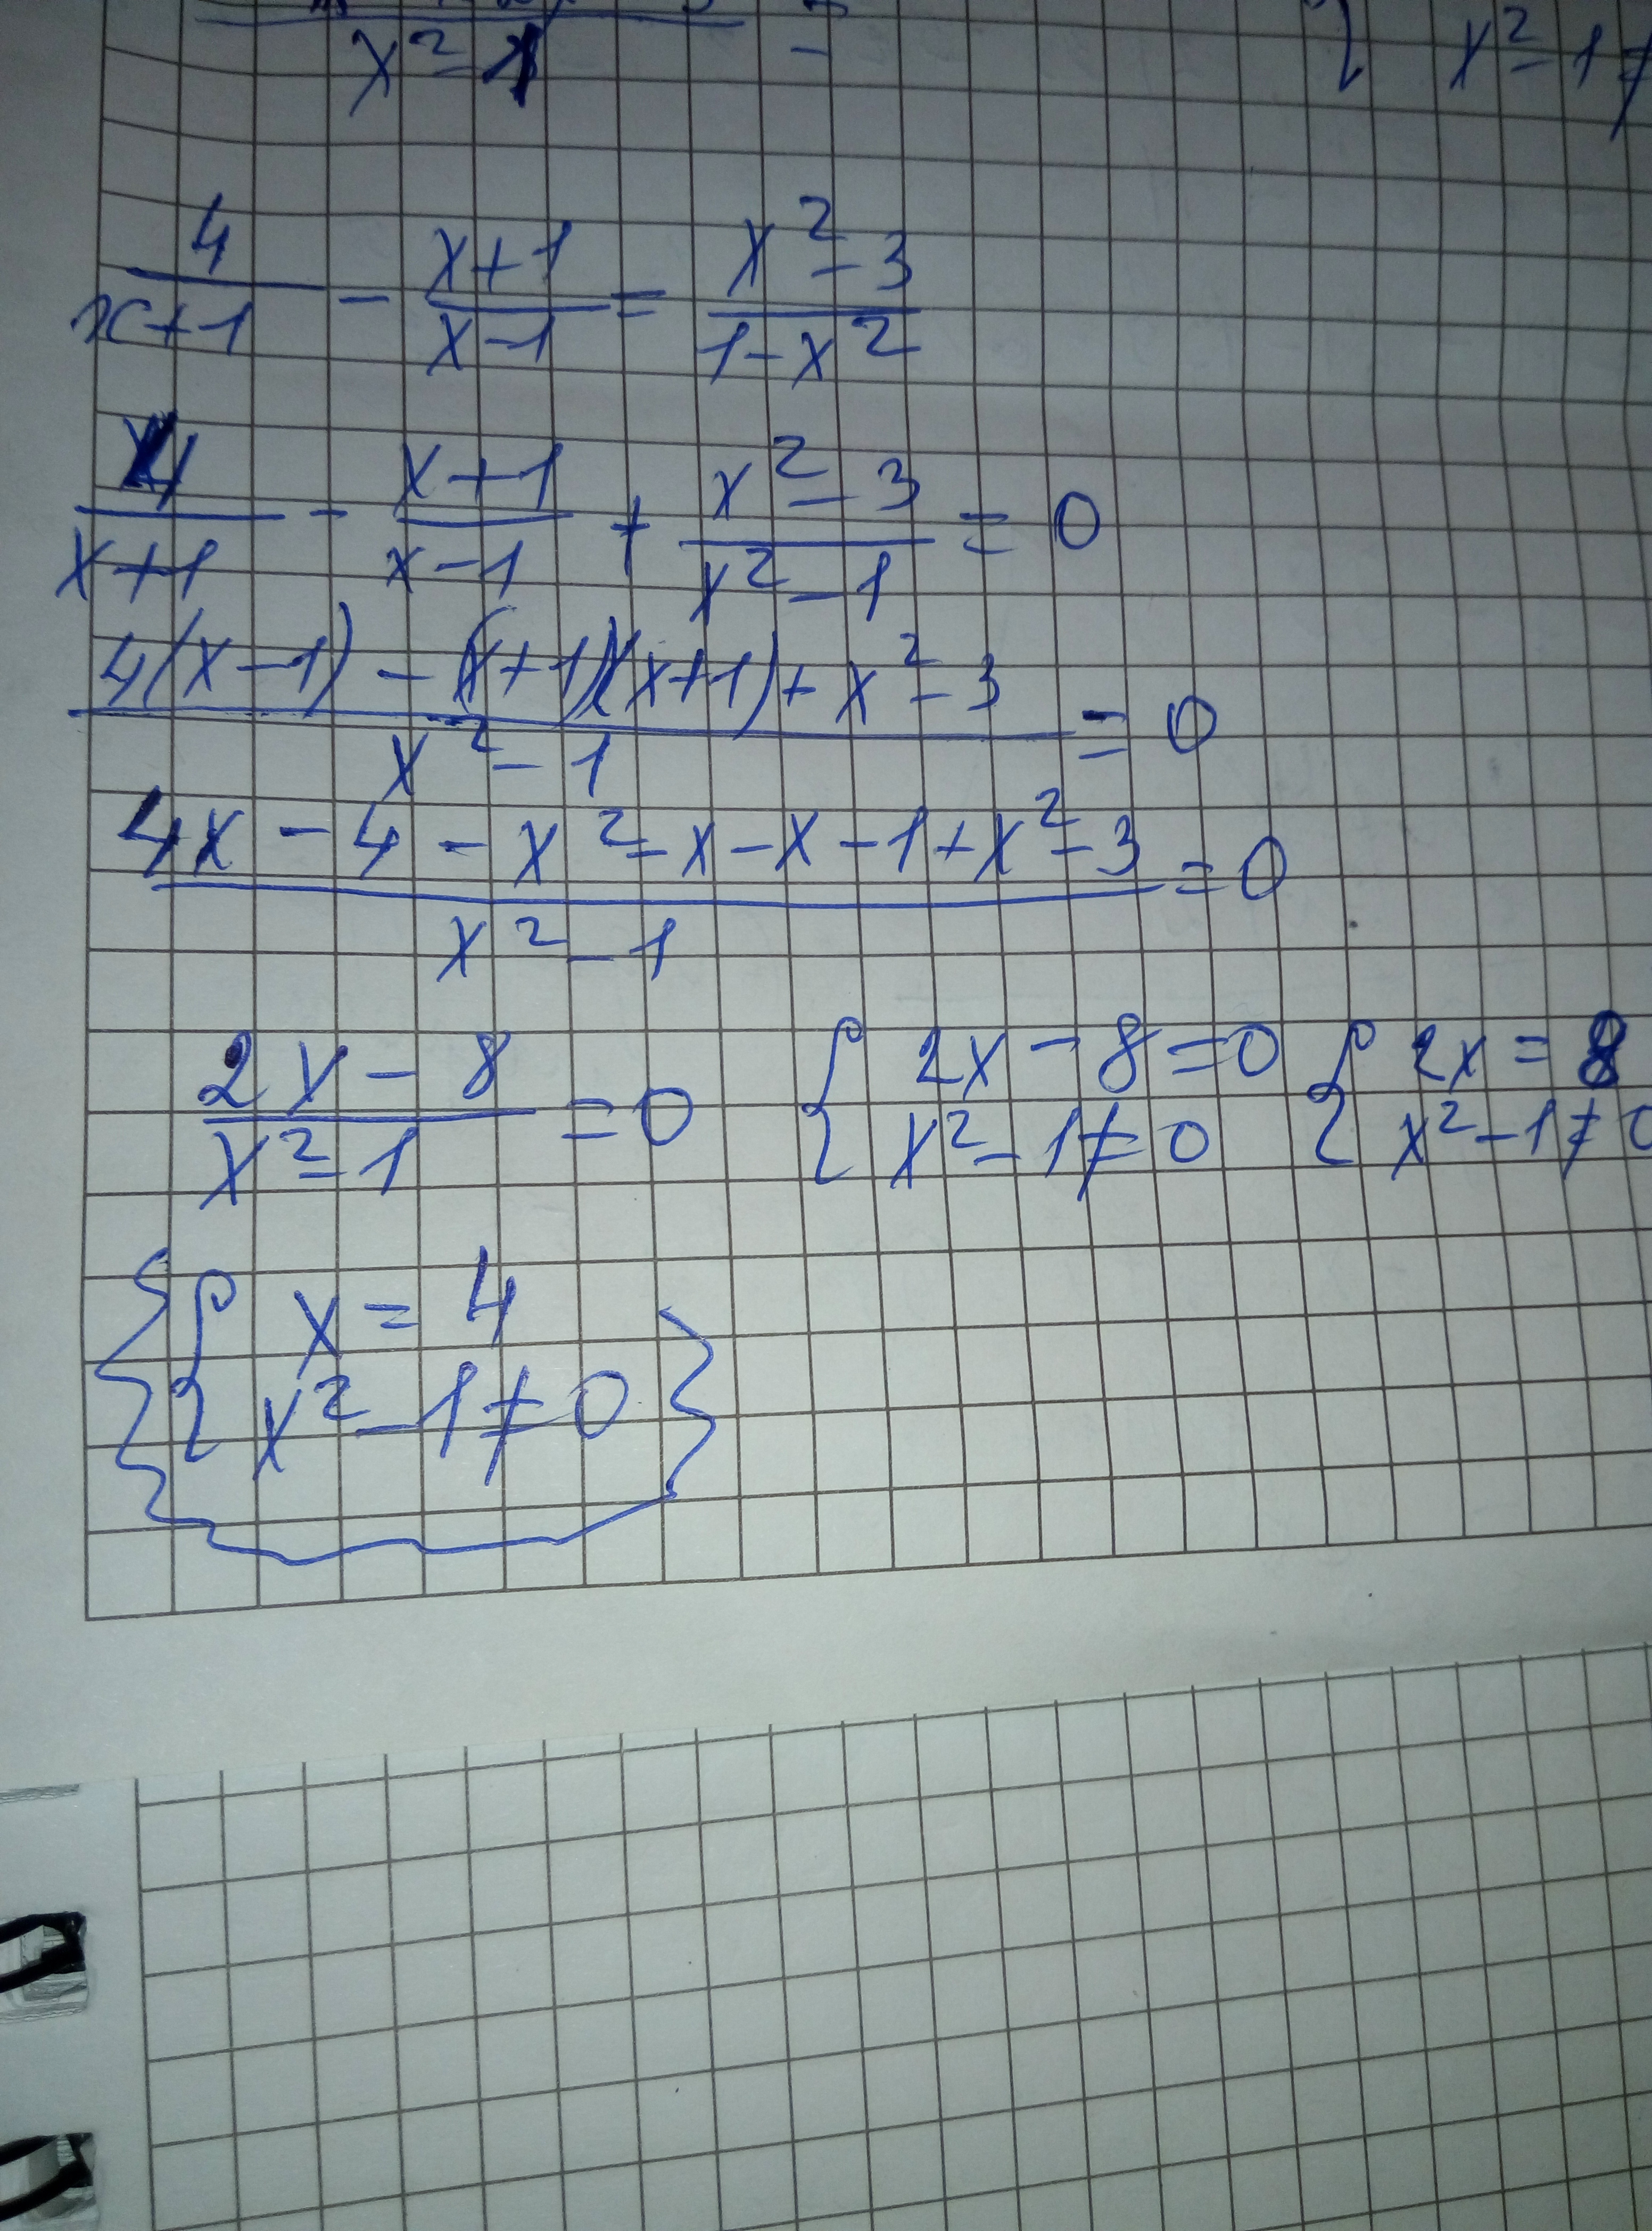 x² - 1 = x² - 1 ≠
4/(x+1) - (x+1)/(x-1) = (x² - 3)/(1 - x²)
4/(x+1) - (x+1)/(x-1) + (x² - 3)/(x² - 1) = 0
(4(x-1) - (x+1)(x+1) + x² - 3)/(x² - 1) = 0
(4x - 4 - x² - x - x - 1 + x² - 3)/(x² - 1) = 0
(2x - 8)/(x² - 1) = 0 { 2x - 8 = 0 { 2x = 8
x² - 1 ≠ 0 x² - 1 ≠ 0
{ x = 4
x² - 1 ≠ 0